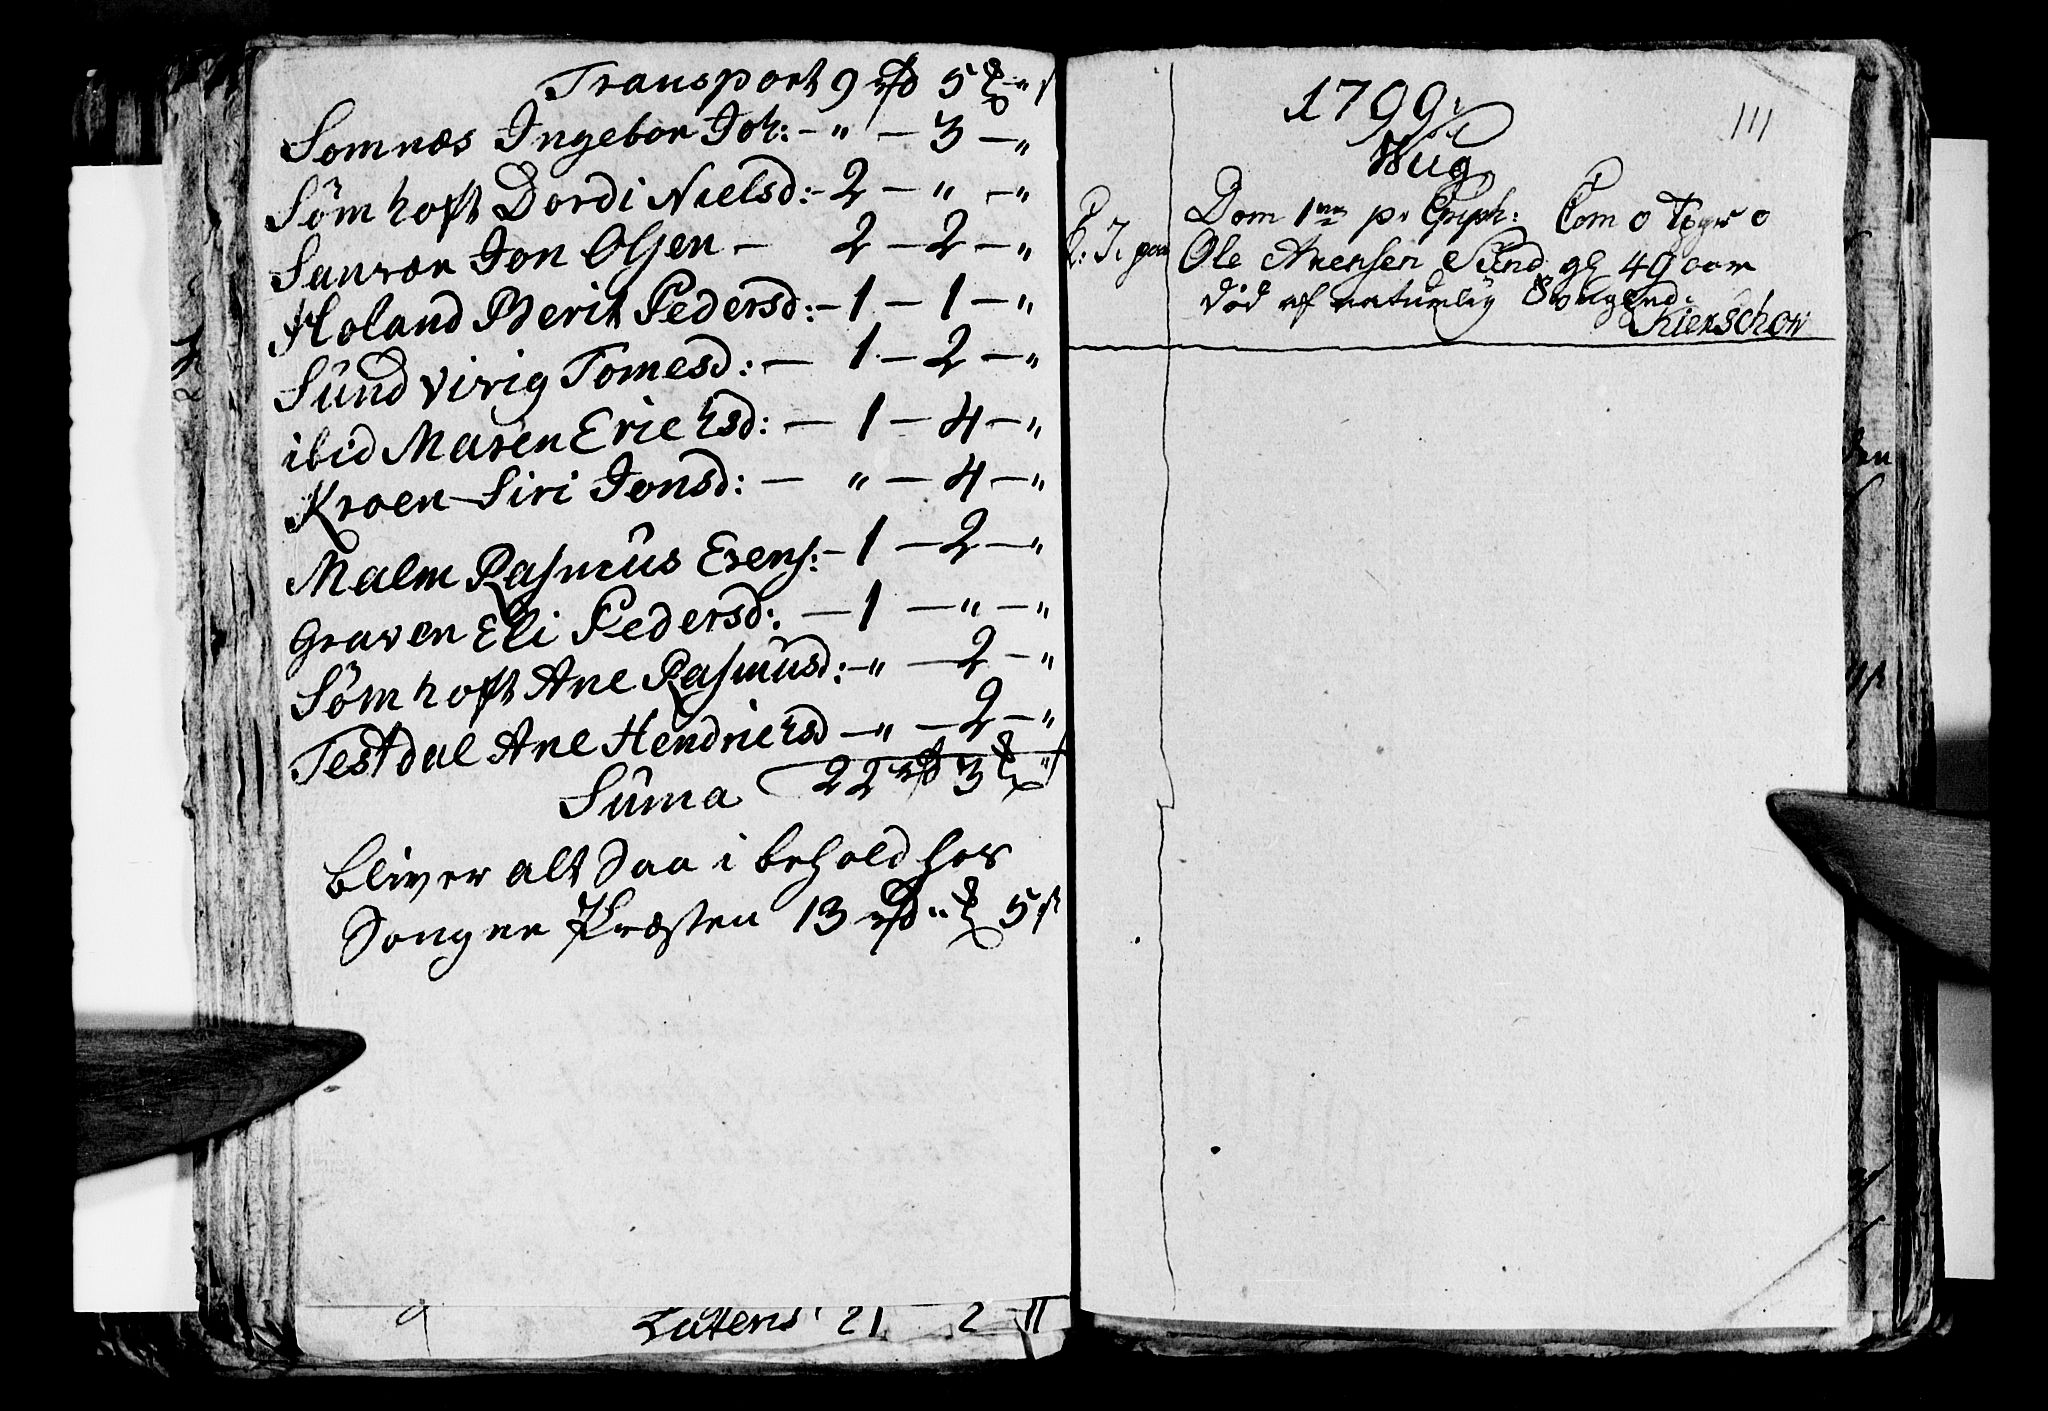 Transport 9 rd 5 " "
Somnæs Ingebor Joh: - " - 3 - "
Sömhoft Dordi Nielsd: - 2 - " - "
Sanvær Jon Olsen - 2 - 2 - "
Holand Berit Pedersd: - 1 - 1 - "
Sund Virig Tomesd: - 1 - 2 - "
ibid Maren Erichsd: - 1 - 4 - "
Kroen Siri Jonsd: - " - 4 - "
Malm Rasmus Evens: - 1 - 2 - "
Graven Eli Pedersd: - 1 - " - "
Sömhoft Ane Rasmusd: - " - 2 - "
Testdal Ane Hendrichsd - " - 2 - "
Suma 22 rd 3 "
bliver alt Saa i behold hos
Sogne Præsten 13 rd " 5 s
Latens 21 2 11
1799
111
Wiig
Dom 1ma p. Epiph: Com 0 0
Ole Arensen Sund gl 49 aar
død af naturlig Svagend.
Kierschow